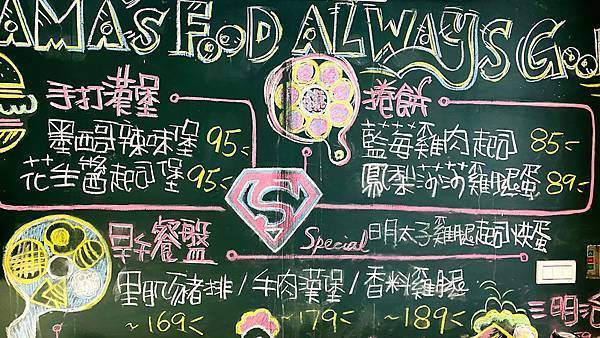 MAMA'S FOOD ALWAYS Goo
手打漢堡
墨西哥辣味堡 95
花生醬起司堡 95
捲餅
藍莓雞肉起司 85
鳳梨莎莎雞腿蛋 89
S
早午餐盤
Special 明太子雞腿起司烘蛋
里肌豬排/牛肉漢堡/香料雞腿
~169 ~179 ~189
三明治